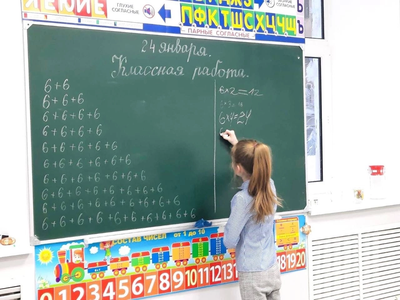 ГЛУХИЕ СОГЛАСНЫЕ
ПФКТШСХЦЧЩ
ПАРНЫЕ СОГЛАСНЫЕ
24 января.
Классная работа.
6+6
6+6+6
6+6+6+6
6+6+6+6
6+6+6+6+6
6+6+6+6+6+6
6+6+6+6+6+6+6
6+6+6+6+6+6+6+6
6+6+6+6+6+6+6+6+6
6+6+6+6+6+6+6+6+6+6
6×2=12
6×4=24
СОСТАВ ЧИСЕЛ от 1 до 10
0 1 2 3 4 5 6 7 8 9 10 11 12 13 14 15 18 19 20